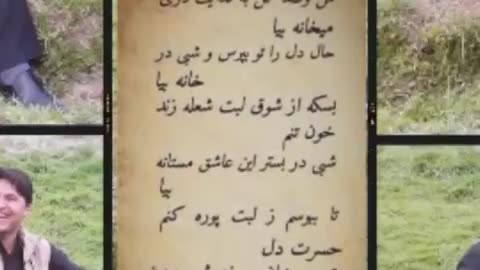 میخانه بیا
حال دل را تو بپرس و شبی در
خانه بیا
بسکه از شوق لبت شعله زند
خون تنم
شبی در بستر این عاشق مستانه
بیا
تا ببوسم ز لبت پوره کنم
حسرت دل